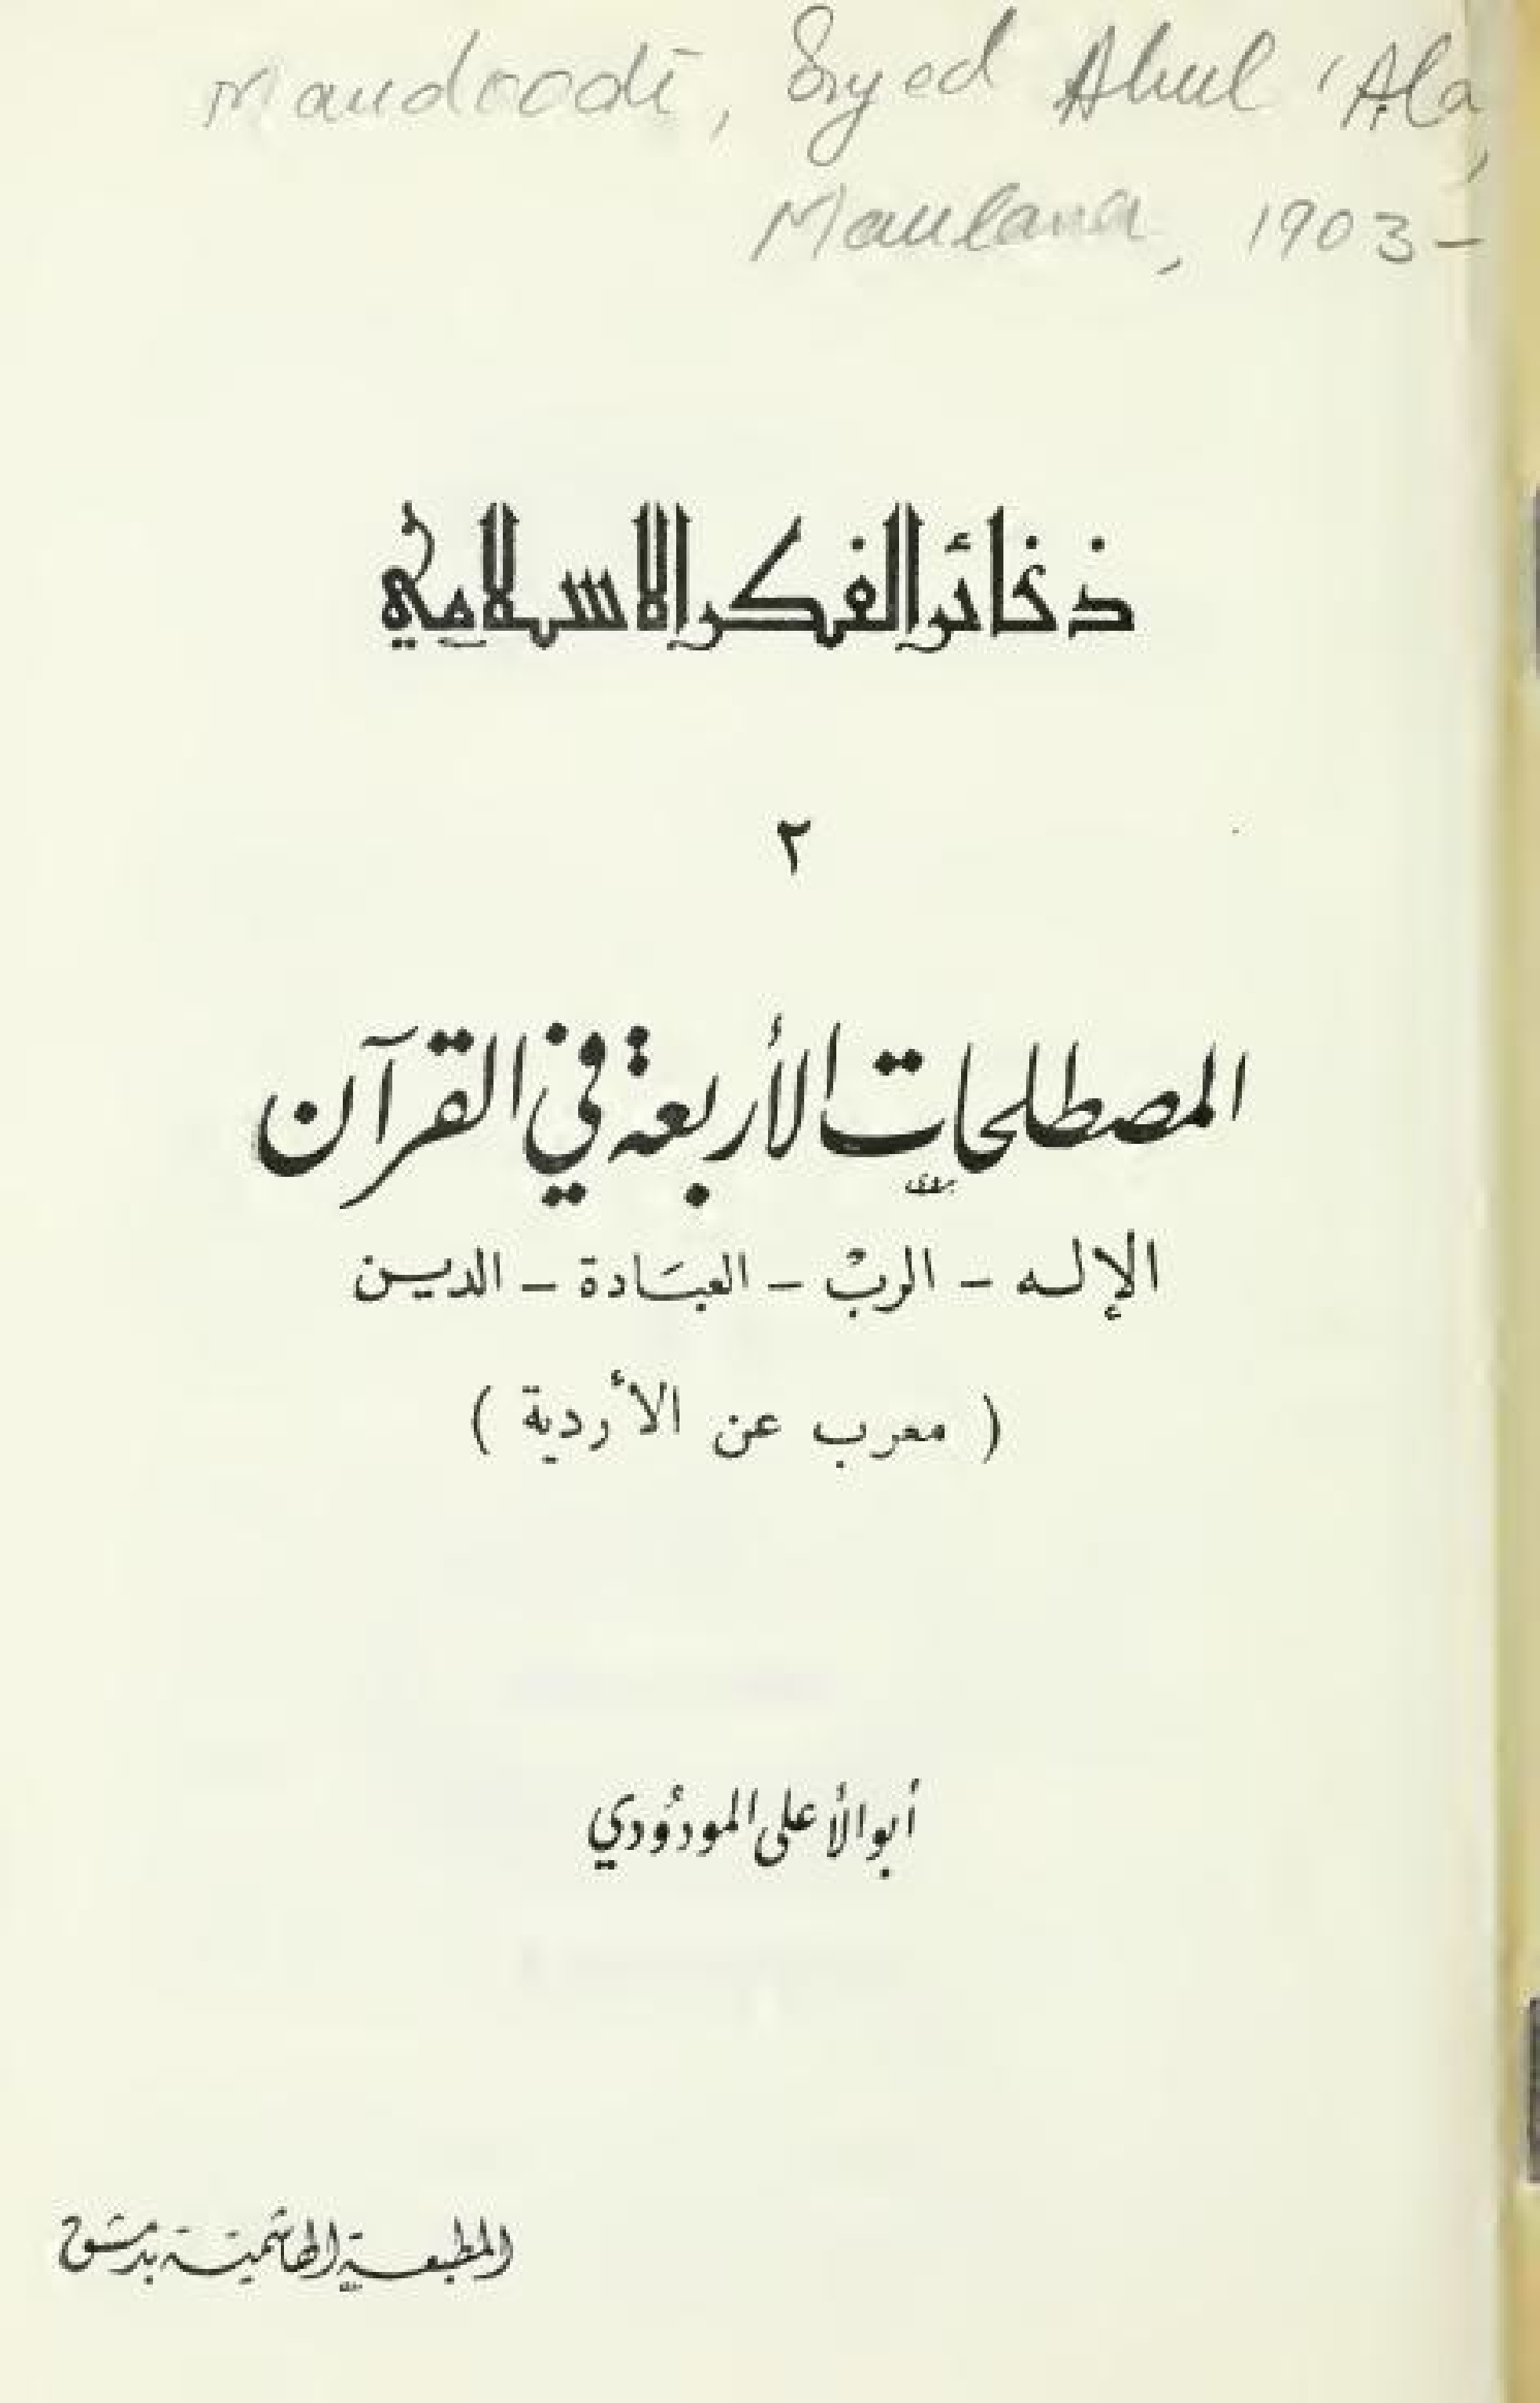 Maudoodi, Syed Abul 'Ala,
Maulana, 1903-
ذخائر الفكر الاسلامي
٢
المصطلحات الأربعة في القرآن
الإله - الربّ - العبَادة - الدين
( معرب عن الأردية )
أبو الأعلى المودُودي
المطبعة الهاشمية بدمشق